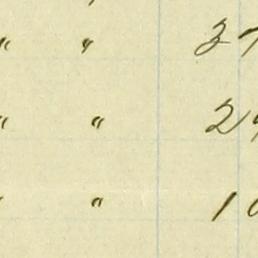 " " 37
" " 24
" " 10